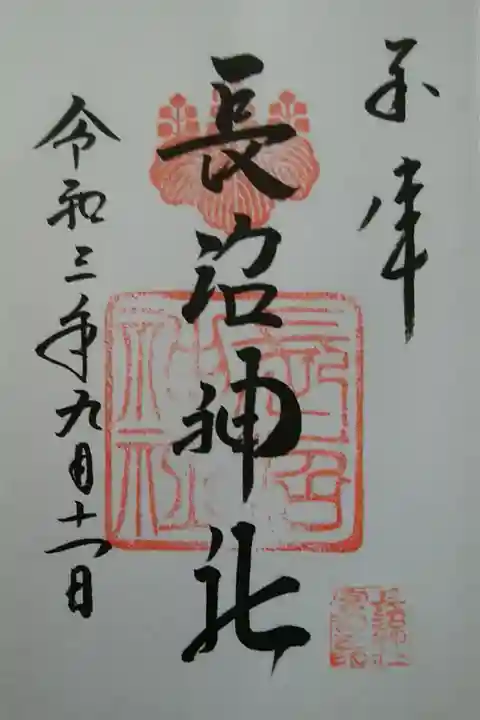 奉拝
長沼神社
令和三年九月十一日